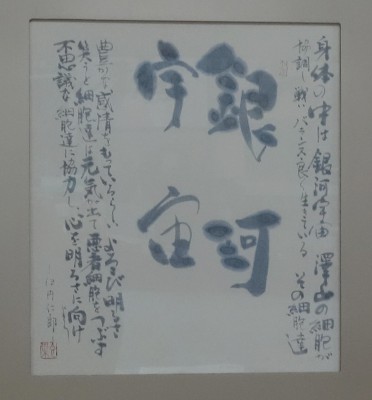 身体の中は銀河宇宙 澤山の細胞が
協調し戦いバランス良く生きている その細胞達
銀河
宇宙
豊かな感情をもっているらしい よろこび明るさ
笑うと細胞達は元気が出て悪者細胞をつぶす
不思議な細胞達に協力し、心を明るさに向け